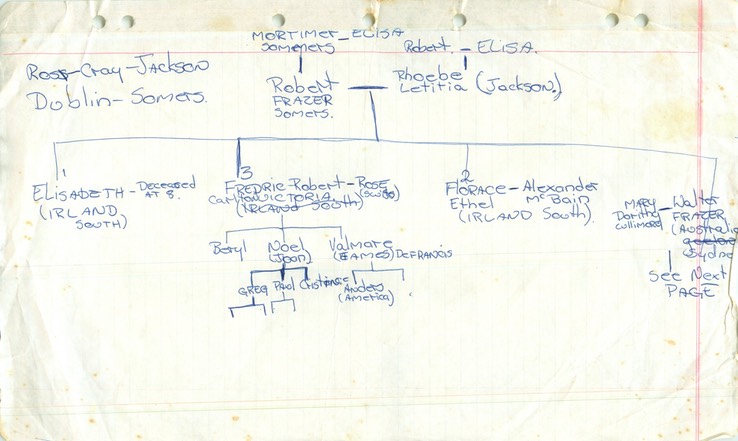 MORTIMER - ELISA
SOMMERS
Robert. - ELISA.
Ross-Cray-Jackson
Dublin-Somers.
Robert
FRAZER
Somers.
Phoebe
Letitia (Jackson.)
1
3
2
ELISABETH - Deceased
AT 8.
(IRLAND
SOUTH)
FREDRIC-Robert-ROSE
CARLTON VICTORIA
(IRLAND SOUTH)
FLORACE - Alexander
Ethel McBain
(IRLAND South).
MARY - Walter
Dorithy FRAZER
Cullimore (Australia
Sydne
See Next
PAGE
Beryl Noel Valmare
(Joan) (EAMES) DEFRANCIS
GREG PAUL Cristine
Anders
(America)